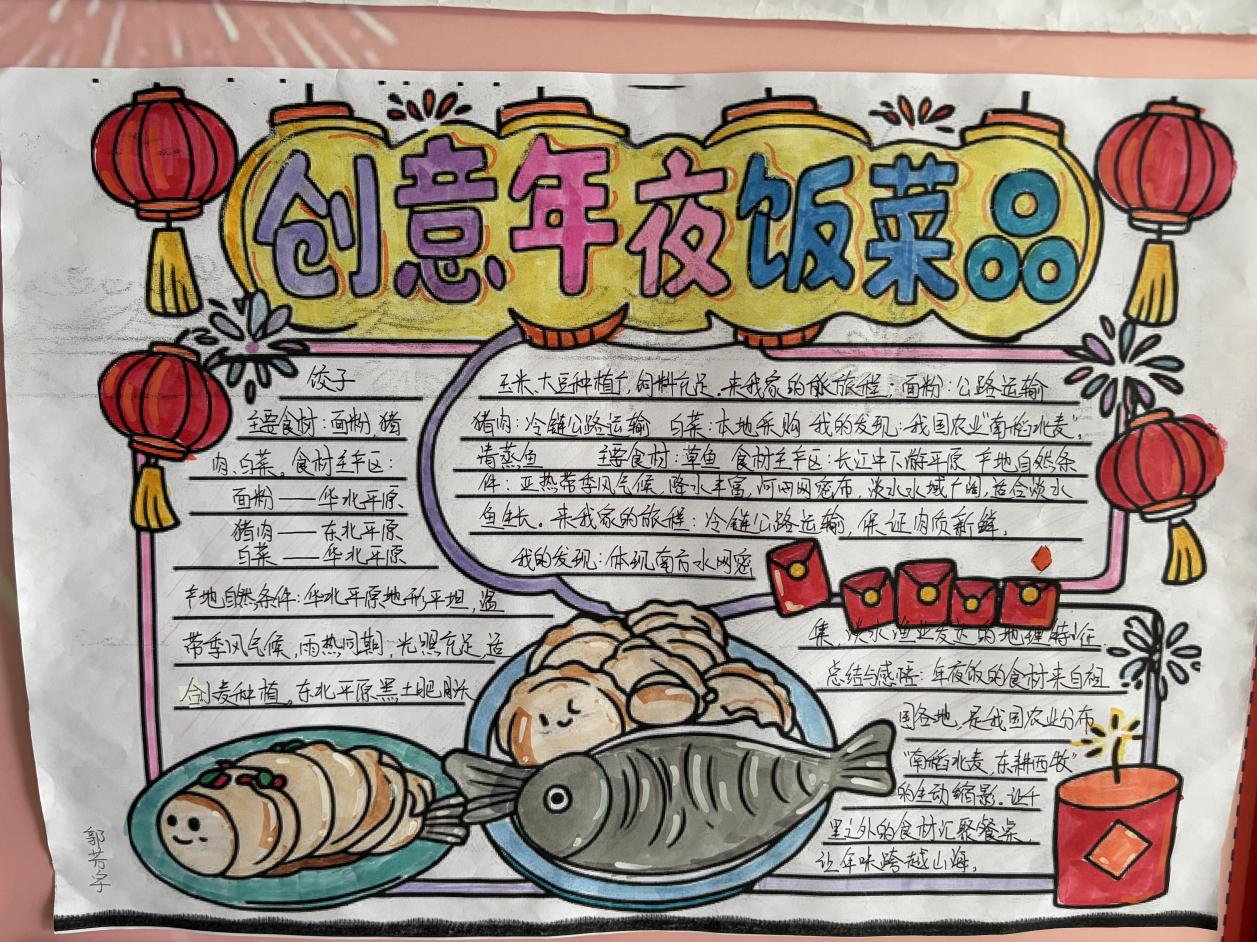 创意年夜饭菜品
饺子
主要食材:面粉,猪
肉、白菜。食材主产区:
面粉——华北平原
猪肉——东北平原
白菜——华北平原
产地自然条件:华北平原地形平坦,温
带季风气候,雨热同期,光照充足,适
合小麦种植。东北平原黑土肥沃
玉米、大豆种植广,饲料充足。来我家的旅程:面粉:公路运输
猪肉:冷链公路运输 白菜:本地采购 我的发现:我国农业“南稻北麦”,
清蒸鱼 主要食材:草鱼 食材主产区:长江中下游平原 产地自然条
件:亚热带季风气候,降水丰富,河网密布,淡水水域广阔,适合淡水
鱼生长。来我家的旅程:冷链公路运输,保证肉质新鲜。
我的发现:体现南方水网密
集,淡水渔业发达的地理特征
总结与感悟:年夜饭的食材来自祖
国各地,是我国农业分布
“南稻北麦,东耕西牧”
的生动缩影。让千
里之外的食材汇聚餐桌,
让年味跨越山海。
郭芳宇